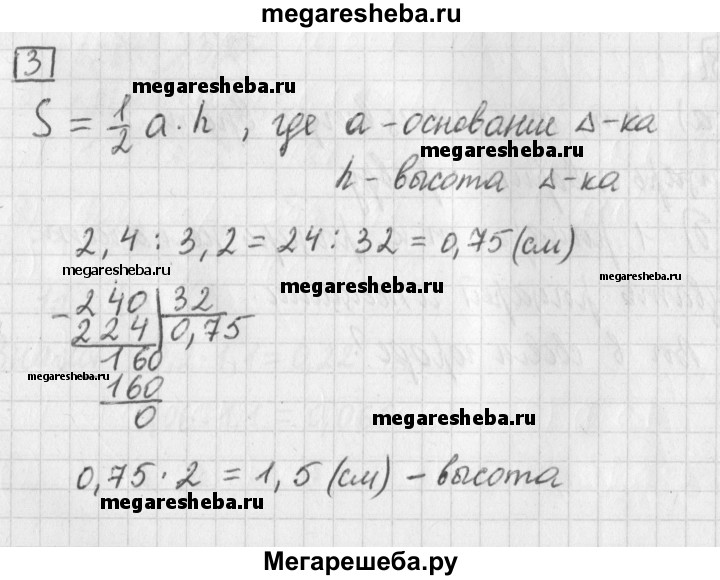 megaresheba.ru
3
megaresheba.ru
S = 1/2 a · h, где a - основание Δ-ка
megaresheba.ru
h - высота Δ-ка
2,4 : 3,2 = 24 : 32 = 0,75 (см)
megaresheba.ru megaresheba.ru megaresheba.ru
- 240 | 32
224 | 0,75
160
megaresheba.ru
160
0
megaresheba.ru
0,75 · 2 = 1,5 (см) - высота
megaresheba.ru
Мегарешеба.ру